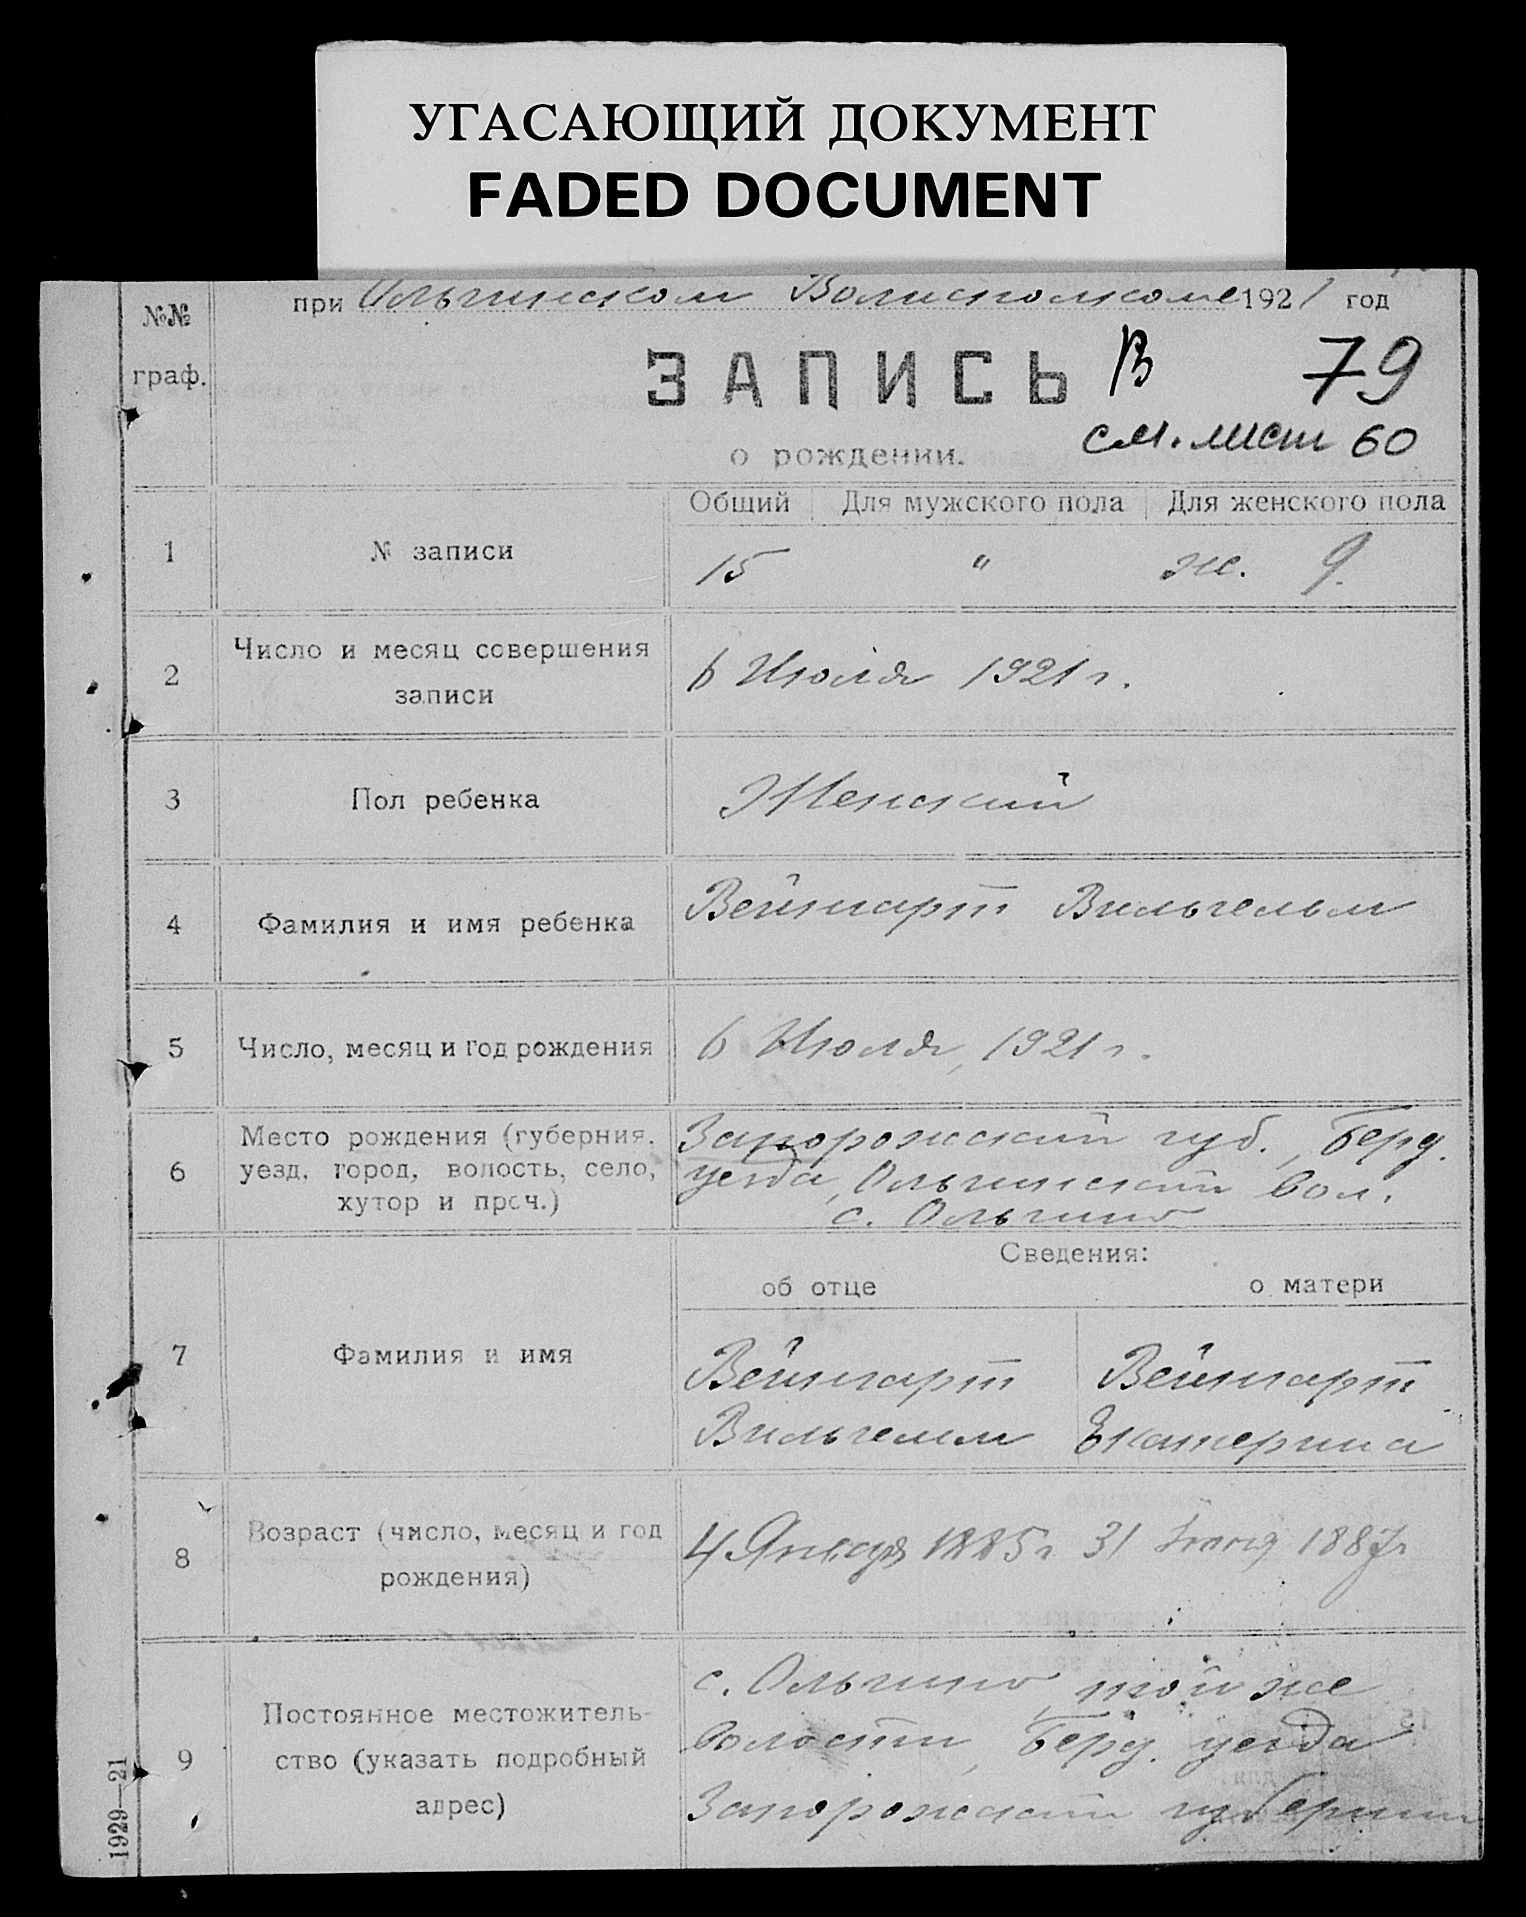 УГАСАЮЩИЙ ДОКУМЕНТ
FADED DOCUMENT
№№ граф.
при Ольгинском Волисполкоме 1921 год
ЗАПИСЬ В 79
о рождении. см. лист 60
Общий Для мужского пола Для женского пола
1 № записи 15 " ж. 9.
2 Число и месяц совершения записи 6 Июля 1921 г.
3 Пол ребенка Женский
4 Фамилия и имя ребенка Вейнгарт Вильгельм
5 Число, месяц и год рождения 6 Июля, 1921 г.
6 Место рождения (губерния, уезд, город, волость, село, хутор и проч.)
Запорожской губ., Берд.
уезда, Ольгинской вол.
с. Ольгино
Сведения:
об отце о матери
7 Фамилия и имя
Вейнгарт Вейнгарт
Вильгельм Екатерина
8 Возраст (число, месяц и год рождения) 4 Января 1885 г 31 1887 г
9 Постоянное местожительство (указать подробный адрес)
с. Ольгино, той же
волости, Берд. уезда
Запорожской губернии
1929—21